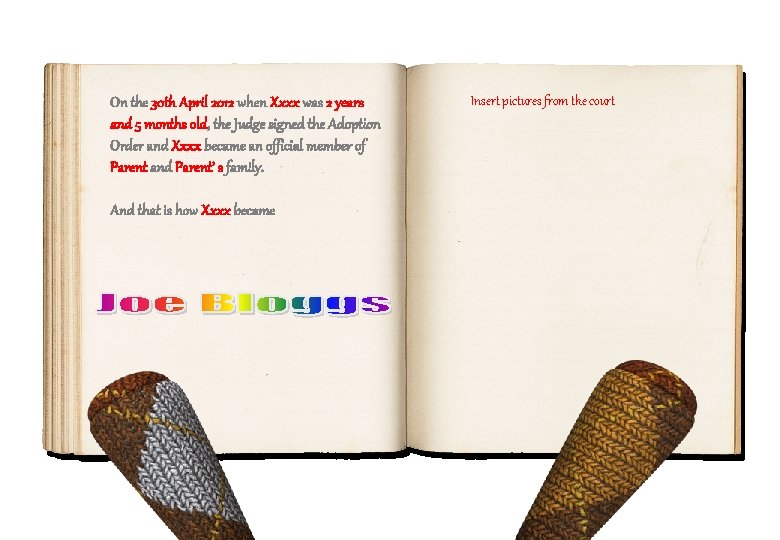 On the 30th April 2012 when Xxxx was 2 years
and 5 months old, the Judge signed the Adoption
Order and Xxxx became an official member of
Parent and Parent's family.
And that is how Xxxx became
Joe Bloggs
Insert pictures from the court